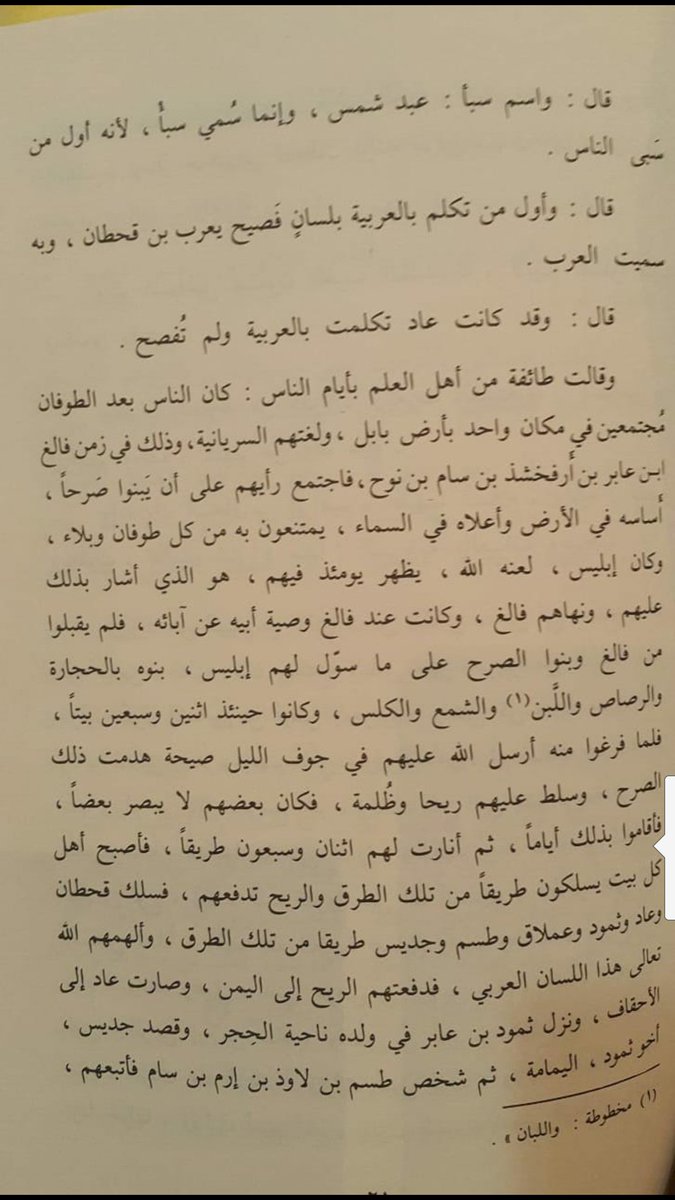 قال : واسم سبأ : عبد شمس ، وإنما سُمي سبأ ، لأنه أول من
سَبى الناس .
قال : وأول من تكلم بالعربية بلسانٍ فَصيح يعرب بن قحطان ، وبه
سميت العرب .
قال : وقد كانت عاد تكلمت بالعربية ولم تُفصح .
وقالت طائفة من أهل العلم بأيام الناس : كان الناس بعد الطوفان
مُجتمعين في مكان واحد بأرض بابل ، ولغتهم السريانية، وذلك في زمن فالغ
ابن عابر بن أَرفخشذ بن سام بن نوح، فاجتمع رأيهم على أن يَبنوا صَرحاً ،
أساسه في الأرض وأعلاه في السماء ، يمتنعون به من كل طوفان وبلاء ،
وكان إبليس ، لعنه الله ، يظهر يومئذ فيهم ، هو الذي أشار بذلك
عليهم ، ونهاهم فالغ ، وكانت عند فالغ وصية أبيه عن آبائه ، فلم يقبلوا
من فالغ وبنوا الصرح على ما سوّل لهم إبليس ، بنوه بالحجارة
والرصاص واللَّبن(١) والشمع والكلس ، وكانوا حينئذ اثنين وسبعين بيتاً ،
فلما فرغوا منه أرسل الله عليهم في جوف الليل صيحة هدمت ذلك
الصرح ، وسلط عليهم ريحا وظُلمة ، فكان بعضهم لا يبصر بعضاً ،
فأقاموا بذلك أياماً ، ثم أنارت لهم اثنان وسبعون طريقاً ، فأصبح أهل
كل بيت يسلكون طريقاً من تلك الطرق والريح تدفعهم ، فسلك قحطان
وعاد وثمود وعملاق وطسم وجديس طريقا من تلك الطرق ، وألهمهم الله
تعالى هذا اللسان العربي ، فدفعتهم الريح إلى اليمن ، وصارت عاد إلى
الأحقاف ، ونزل ثمود بن عابر في ولده ناحية الحِجر ، وقصد جديس ،
أخو ثمود ، اليمامة ، ثم شخص طسم بن لاوذ بن إرم بن سام فأتبعهم ،
(١) مخطوطة : واللبان » .